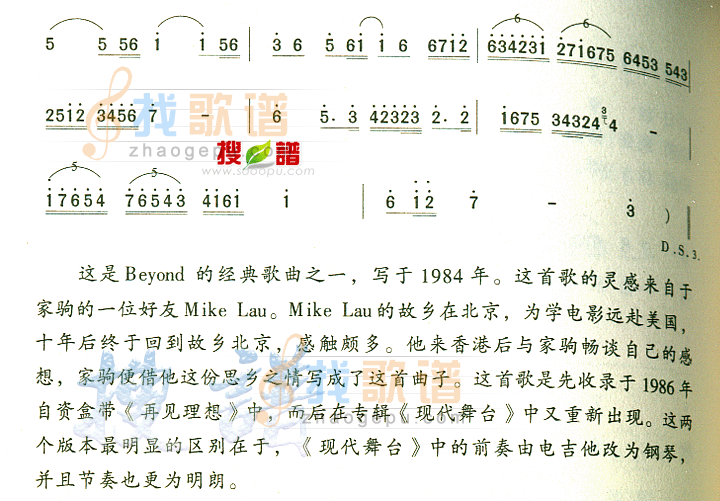 6 6
5 5 56 1 1 56 | 3 6 5 61 1 6 6712 | 634231 271675 6453 543
2512 3456 7 - | 6 5. 3 42323 2. 2 | 1675 34324 4 -
找歌谱
zhaogepu.com
搜谱
www.sooopu.com
5 5
17654 76543 4161 1 | 6 12 7 - 3 )
D.S.3.
这是Beyond 的经典歌曲之一，写于1984年。这首歌的灵感来自于
家驹的一位好友Mike Lau。Mike Lau的故乡在北京，为学电影远赴美国，
十年后终于回到故乡北京，感触颇多。他来香港后与家驹畅谈自己的感
想，家驹便借他这份思乡之情写成了这首曲子。这首歌是先收录于1986年
自资盒带《再见理想》中，而后在专辑《现代舞台》中又重新出现。这两
个版本最明显的区别在于，《现代舞台》中的前奏由电吉他改为钢琴，
并且节奏也更为明朗。